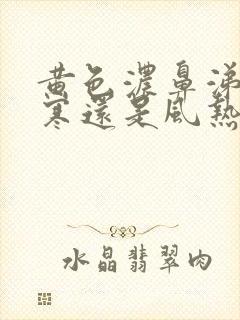 黄色濃鼻涕
寒還是風熱
水晶翡翠肉